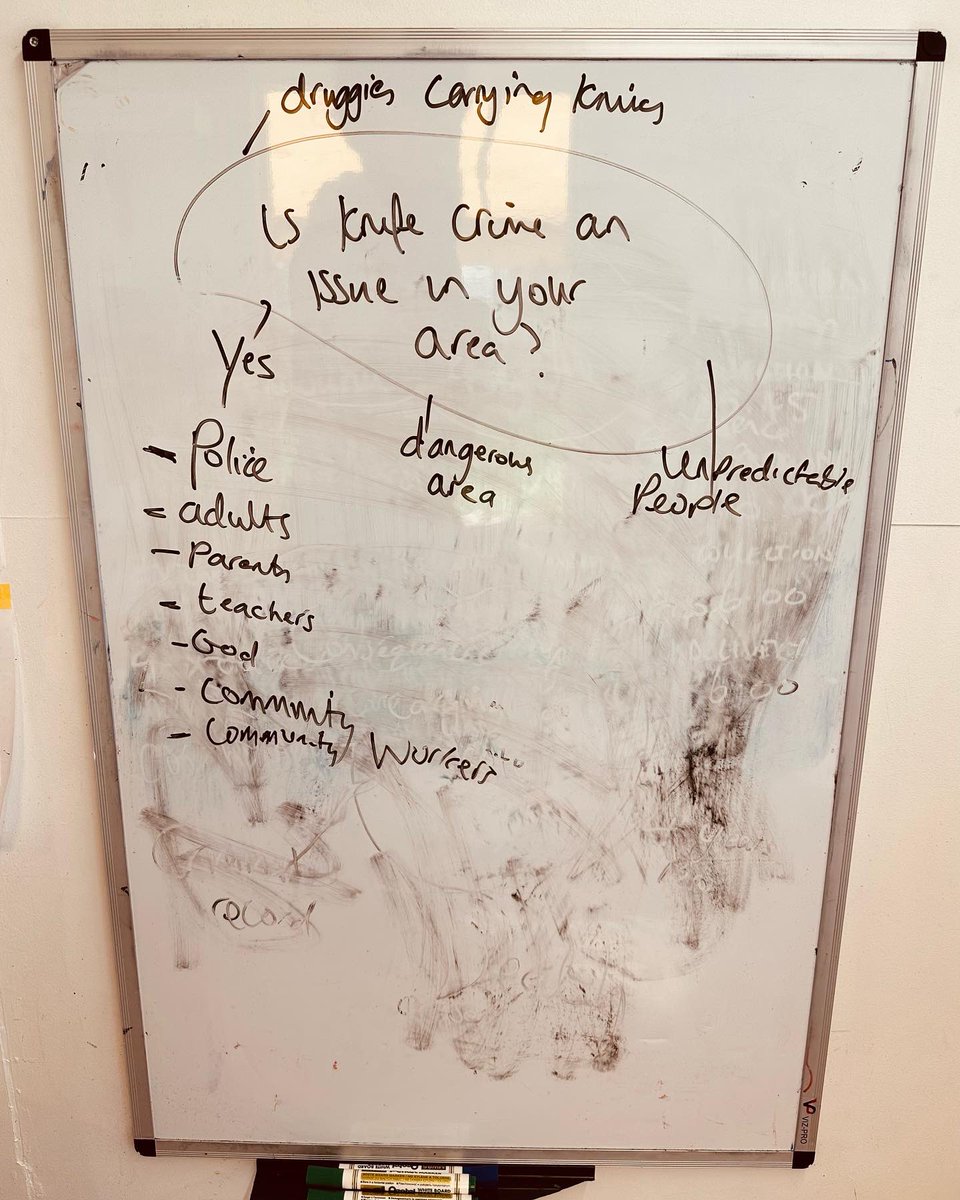 druggies carrying knives
Is knife crime an
issue in your
area?
Yes
dangerous
area
Unpredictable
People
- Police
- adults
- Parents
- teachers
- God
- Community
- Community Workers
record
VIZ-PRO